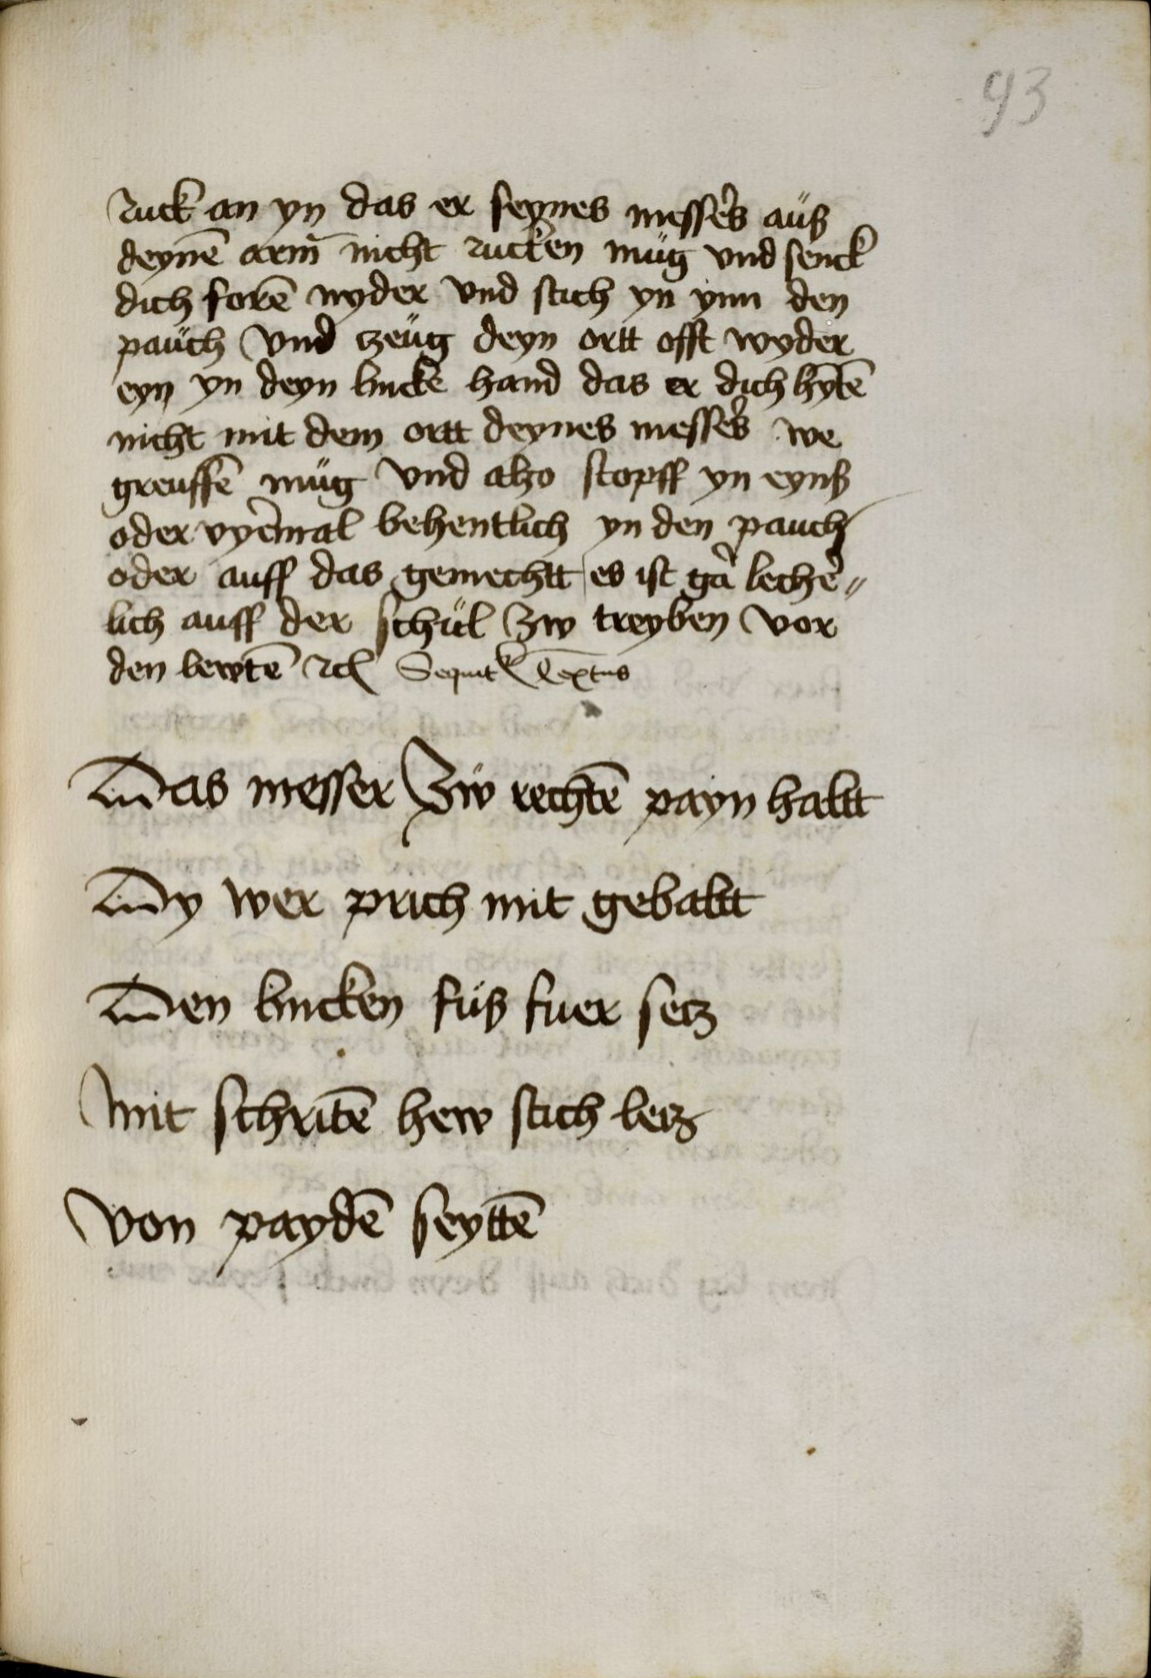 93
Ruck an yn das er seynes messers aüß
deynē arm̄ nicht rucken müg vnd senck
dich forē nyder vnd stich yn ynn den
paüch Vnd zeüg deyn ortt offt wyder
eyn yn deyn lincke hand das er dich hỹtē
nicht mit dem ortt deynes messers we
greuffē müg Vnd also stopff yn eynß
oder vyermal behentlich yn den pauch
oder auff das gemechtt es ist gar lecher〟
lich auff der schül Zw treyben Vor
den lewtē Rcꝉ Sequitr Textus
Das messer Zẅ rechtē payn haltt
Dy wer prich mit gebaltt
Den lincken füß fuer setz
Mit schritē hew stich letz
Von paydē seyttē